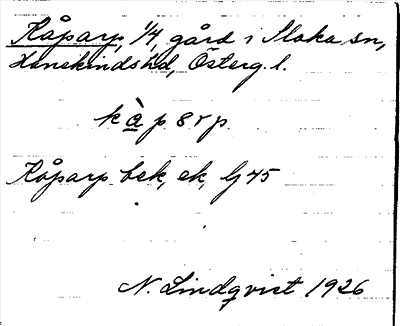 Kåparp, 1/4, gård i Slaka sn,
Hanekinds hd, Österg. l.
kàpərp
Kåparp bek, ek, G 45
N. Lindqvist 1926